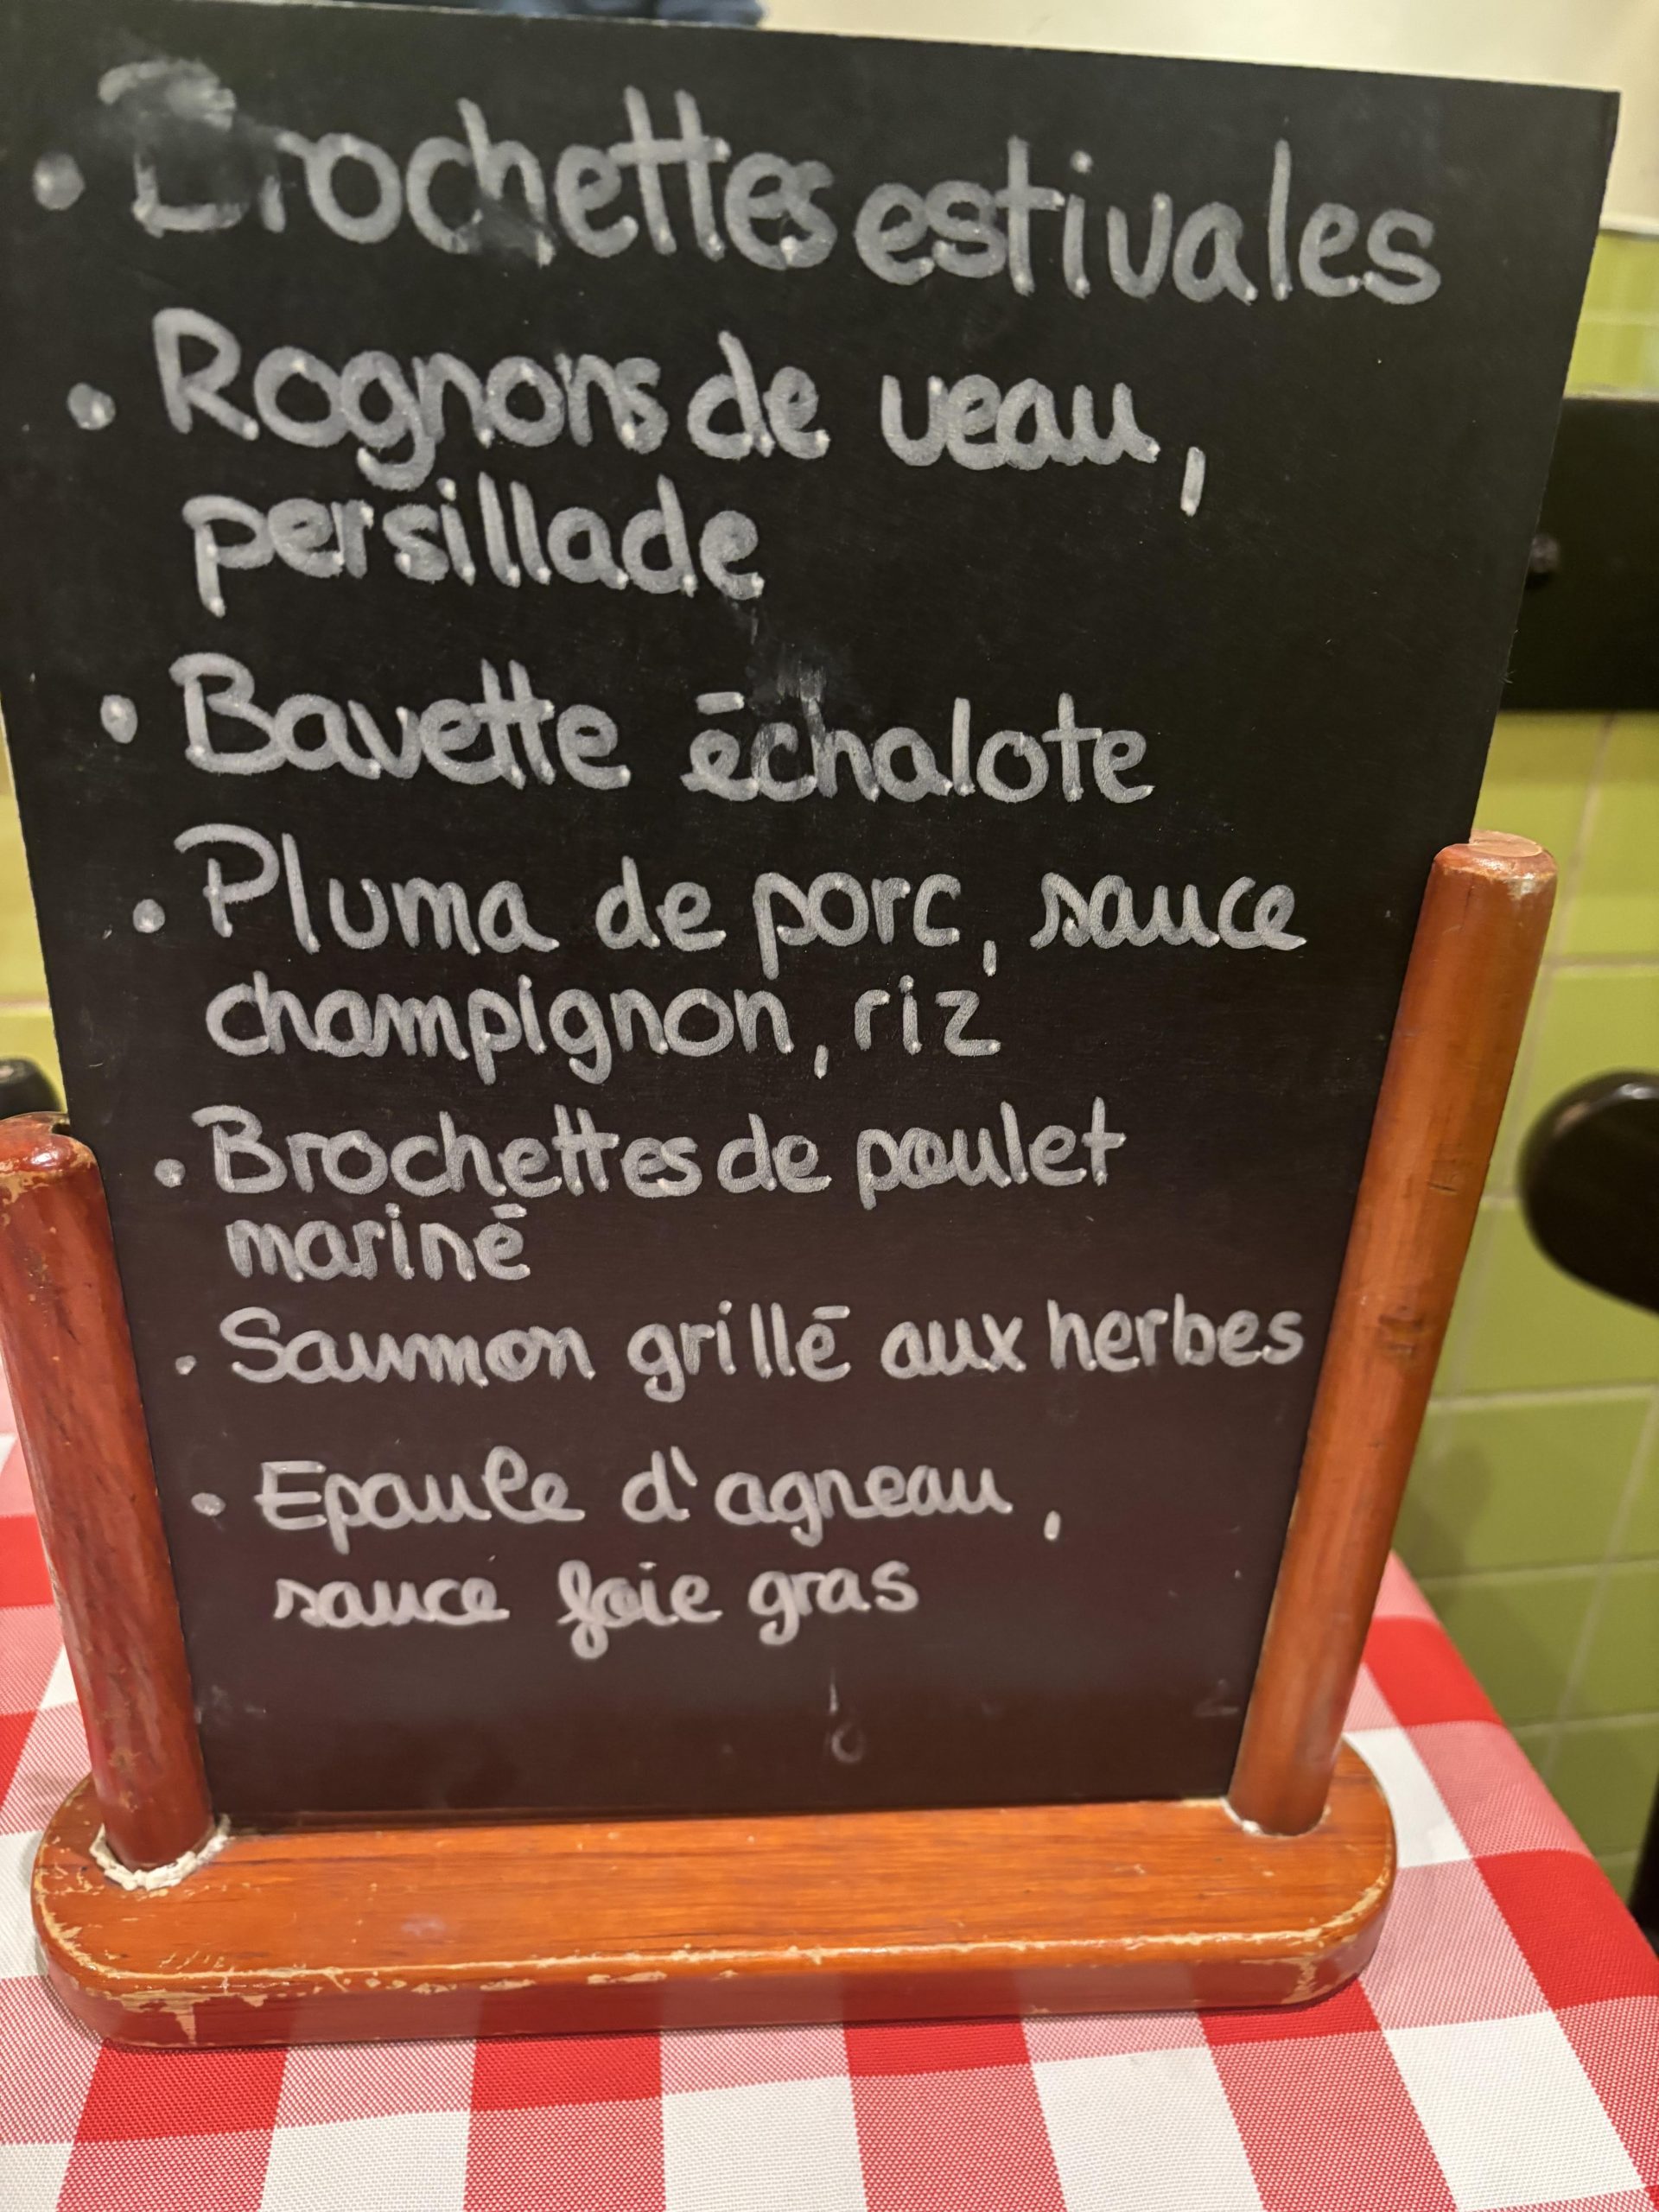 • Brochettes estivales
• Rognons de veau,
persillade
• Bavette échalote
• Pluma de porc, sauce
champignon, riz
• Brochettes de poulet
mariné
• Saumon grillé aux herbes
• Epaule d'agneau,
sauce foie gras